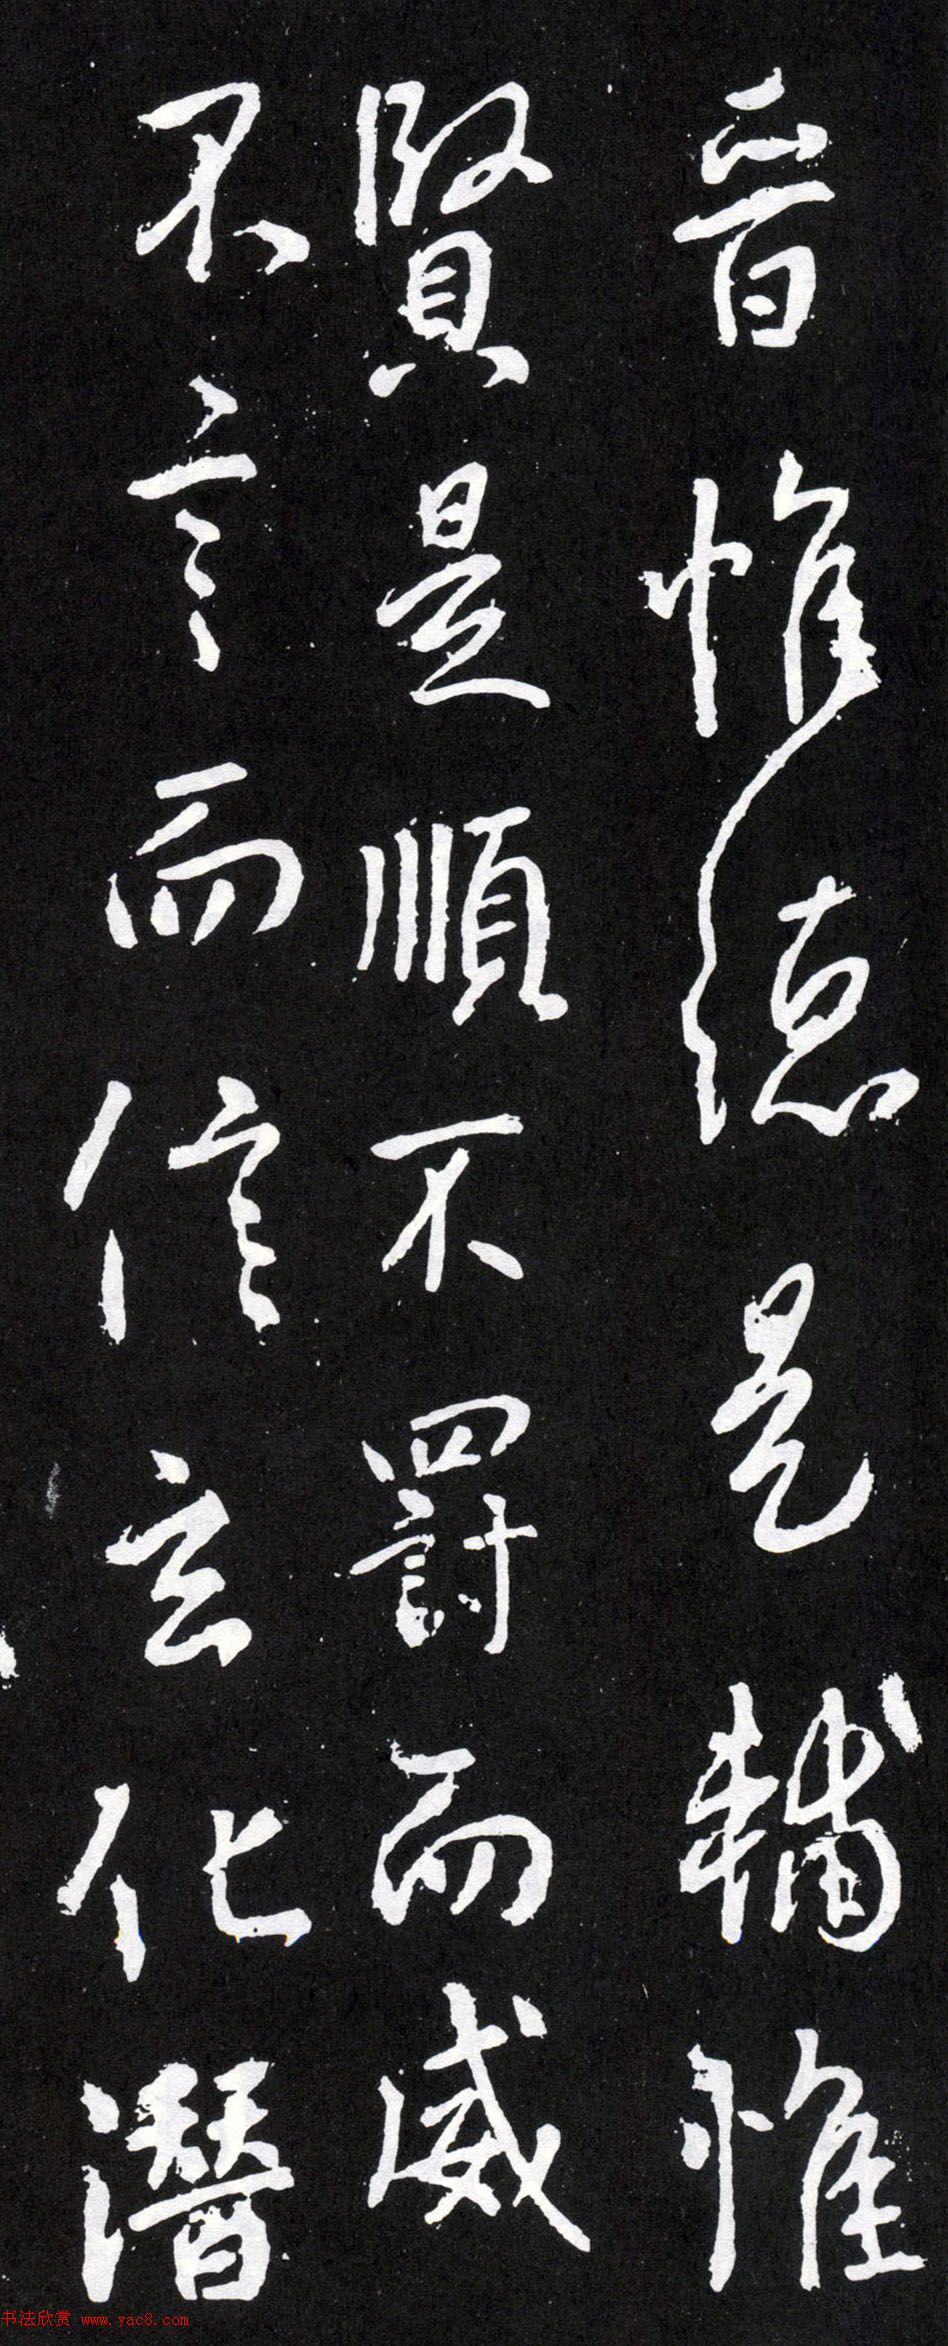 晋惟德是輔惟
賢是順不罰而威
不言而信玄化潛
书法欣赏 www.yac8.com